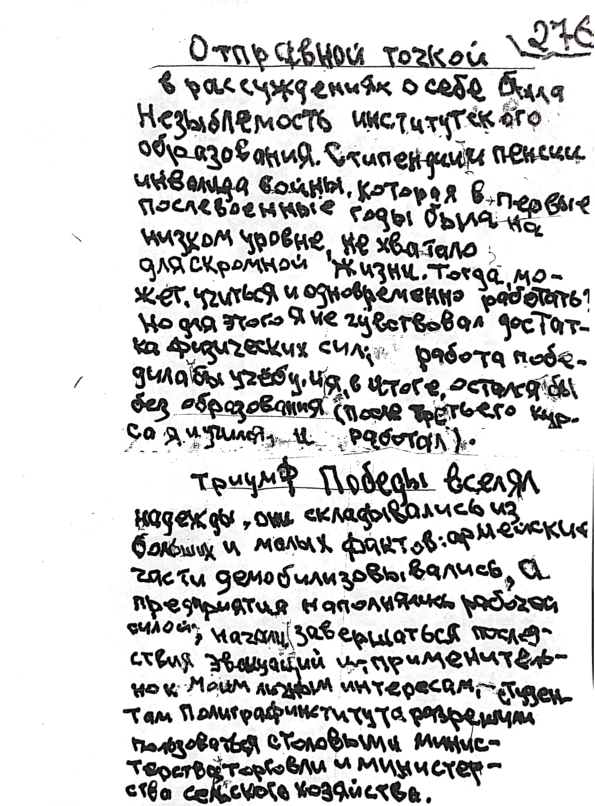 276
Отправной точкой
в рассуждениях о себе была
незыблемость институтского
образования. Стипендии и пенсии
инвалида войны, которая в первые
послевоенные годы была на
низком уровне, не хватало
для скромной жизни. Тогда, мо-
жет, учиться и одновременно работать?
Но для этого я не чувствовал достат-
ка физических сил; работа побе-
дила бы учёбу, и я, в итоге, остался бы
без образования (после третьего кур-
са я и учился, и работал).
Триумф Победы вселял
надежды, они складывались из
больших и малых фактов: армейские
части демобилизовывались, а
предприятия наполнялись рабочей
силой; начали завершаться послед-
ствия эвакуаций и, применитель-
но к моим личным интересам, – студен-
там Полиграфинститута разрешили
пользоваться столовыми Минис-
терства торговли и Министер-
ства сельского хозяйства.